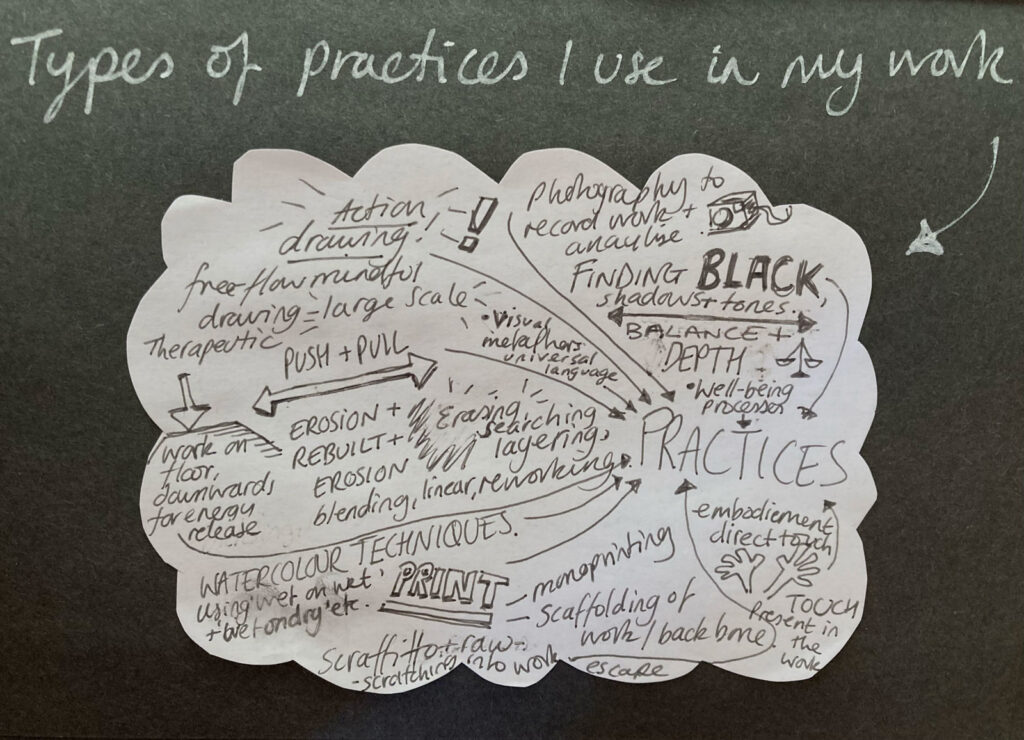 Types of practices I use in my work
Action
drawing!
!
free-flow mindful
drawing = large scale
Therapeutic
PUSH + PULL
work on
floor,
downwards
for energy
release
EROSION +
REBUILT +
EROSION
Erasing,
searching
layering,
blending, linear, reworking.
• Visual
metaphors
universal
language
Photography to
record work +
anaylise
FINDING BLACK,
shadows + tones.
BALANCE +
DEPTH
• Well-being
processor
PRACTICES
embodiement
direct touch
TOUCH
Present in
the
work
WATERCOLOUR TECHNIQUES.
using 'wet on wet'
+ wet on dry' etc.
PRINT
– monoprinting
– scaffolding of
work / back bone
Scraffitto + raw –
– scratching into work
escape